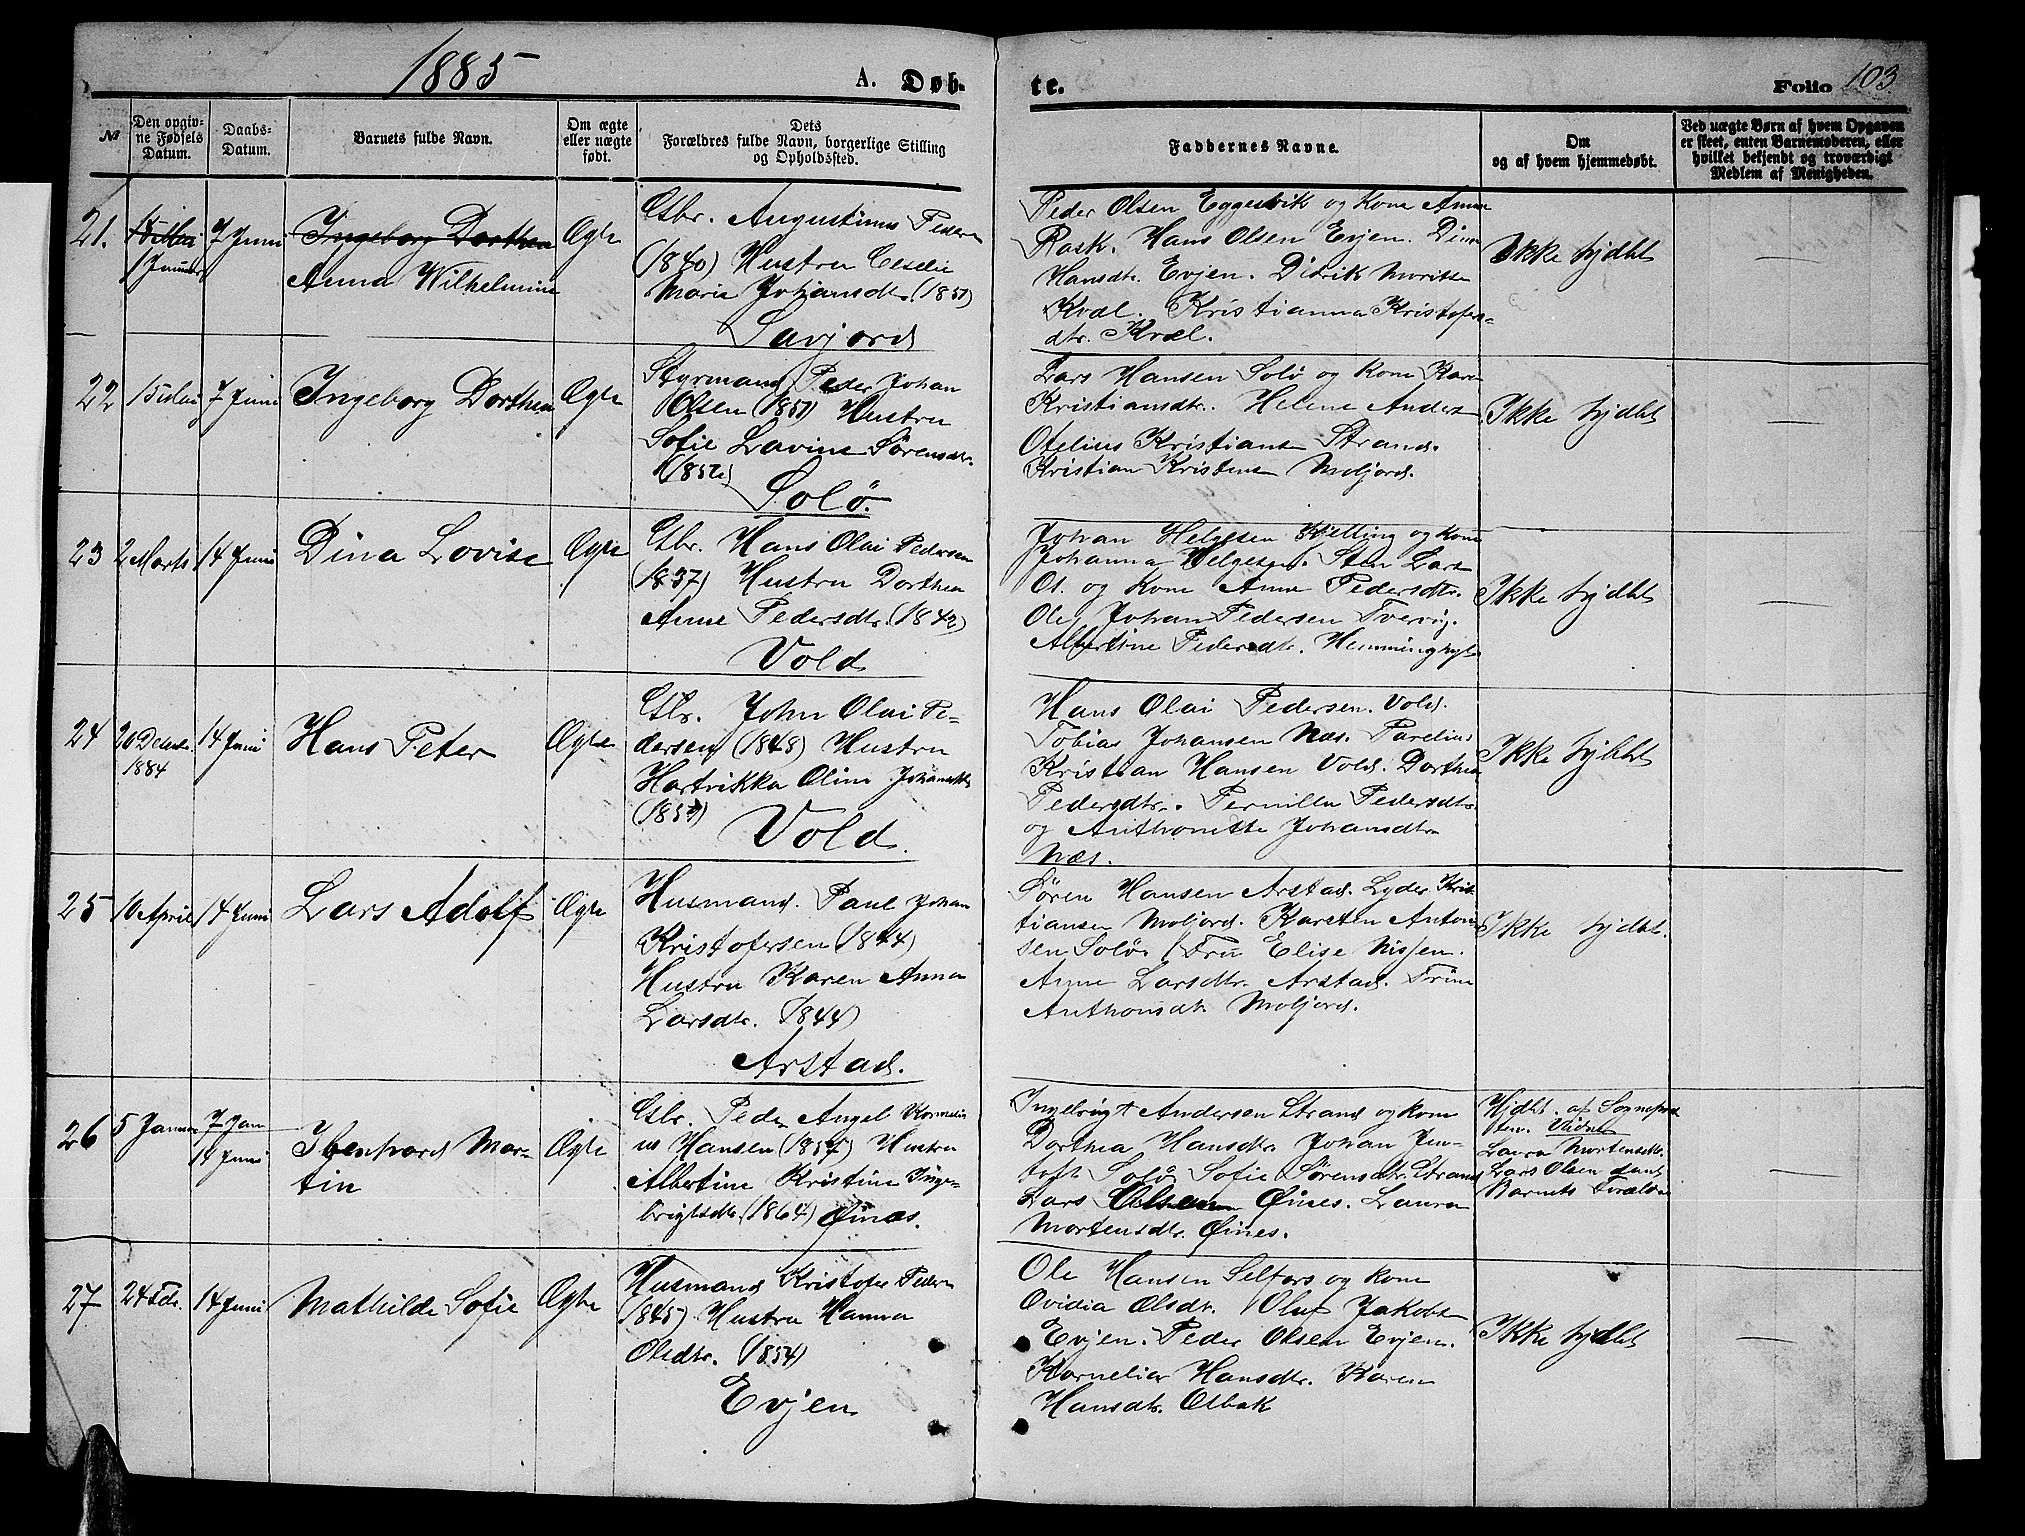 1885
A. Døb-
te.
Folio 103
№
Den opgiv-
ne Fødsels
Datum.
Daabs-
Datum.
Barnets fulde Navn.
Om ægte
eller uægte
født.
Dets
Forældres fulde Navn, borgerlige Stilling
og Opholdssted.
Faddernes Navne.
Om
og af hvem hjemmedøbt.
Ved uægte Børn af hvem Opgaven
er skeet, enten Barnemoderen, eller
hvilket bekjendt og troværdigt
Medlem af Menigheden.
21.
7 Juni
Ingeborg Dorthea
Anna Wilhelmine
Ægte
Gbr. Augustinus Peders
(1840) Hustru
Maria Johansdtr.
Savjord
Peder Olsen Eggesvik og Kone Anna
Rask. Hans Olsen Evjen. Dina
Hansdtr. Evjen. Didrik Morits
Kvæl. Kristianna Kristofers-
dtr. Kvæl.
Ikke hjdbt
22
7 Juni
Ingeborg Dorthea
Ægte
Styrmand Peder Johan
Olsen (1851) Hustru
Sofie Lavine Sørensdtr.
(1852)
Solø.
Lars Hansen Solø og Kone Karen
Kristiansdtr. Helene Anders
Ofelius Kristians Strand.
Kristian Kristens Moljord.
Ikke hjdbt
23
2 Marts
14 Juni
Dina Lovise
Ægte
Gbr. Hans Olai Pedersen
(1837) Hustru Dorthea
Anne Pedersdtr. (1842)
Vold
Johan Helgesen Kjelling og Kone
Johanna Helgesen. Sten Lars
Ol. og Kone Anne Pedersdtr.
Ole Johan Pedersen Tvervig.
Albertine Pedersdtr. Hemminghyt
Ikke hjdbt
24
20 Decbr.
1884
14 Juni
Hans Peter
Ægte
Gbr. John Olai Pe-
dersen (1848) Hustru
Hartvikka Oline Johansdtr
(1853)
Vold.
Hans Olai Pedersen. Vold.
Tobias Johansen Næs. Parelius
Kristian Hansen Vold. Dorthea
Pedersdtr. Pernilla Pedersdtr
og Anthonette Johansdtr
Næs.
Ikke hjdbt
25
10 April
14 Juni
Lars Adolf
Ægte
Husmand. Paul Johan
Kristofersen (1844)
Hustru Karen Anna
Larsdtr. (1844)
Arstad.
Søren Hansen Arstad. Lyder Kris-
tiansen Moljord. Karsten Anton-
sen Solø. Fru Elise Nissen.
Anne Larsdtr. Arstad. Trine
Anthonsdtr Moljord.
Ikke hjdbt.
26
5 Januar
7 Jan
14 Juni
Ibenhard Mar-
tin
Ægte
Gbr. Peder Angel Korneli
us Hansen (1857) Hustru
Albertine Kristine Inge-
brigtsdtr. (1864) Øinæs.
Ingebrigt Andersen Strand og Kone
Dorthea Hansdtr. Johan Jen-
toft Solø Sofie Sørensdtr. Strand
Lars Olsen Øines. Laura
Mortensdtr. Øines.
Hjdbt. af Sognepræ
sten.
Laura Mortensdtr.
Lars Olsen samt
Barnets Forældre
27
24 Feb.
14 Juni
Mathilde Sofie
Ægte
Husmand Kristofer Peders
(1845) Hustru Hanna
Olsdtr. (1854)
Evjen
Ole Hansen Selfors og Kone
Ovidia Olsdtr. Oluf Jakobs
Evjen. Peder Olsen Evjen.
Kornelia Hansdtr. Karen
Hansdtr. Olbak
Ikke hjdbt